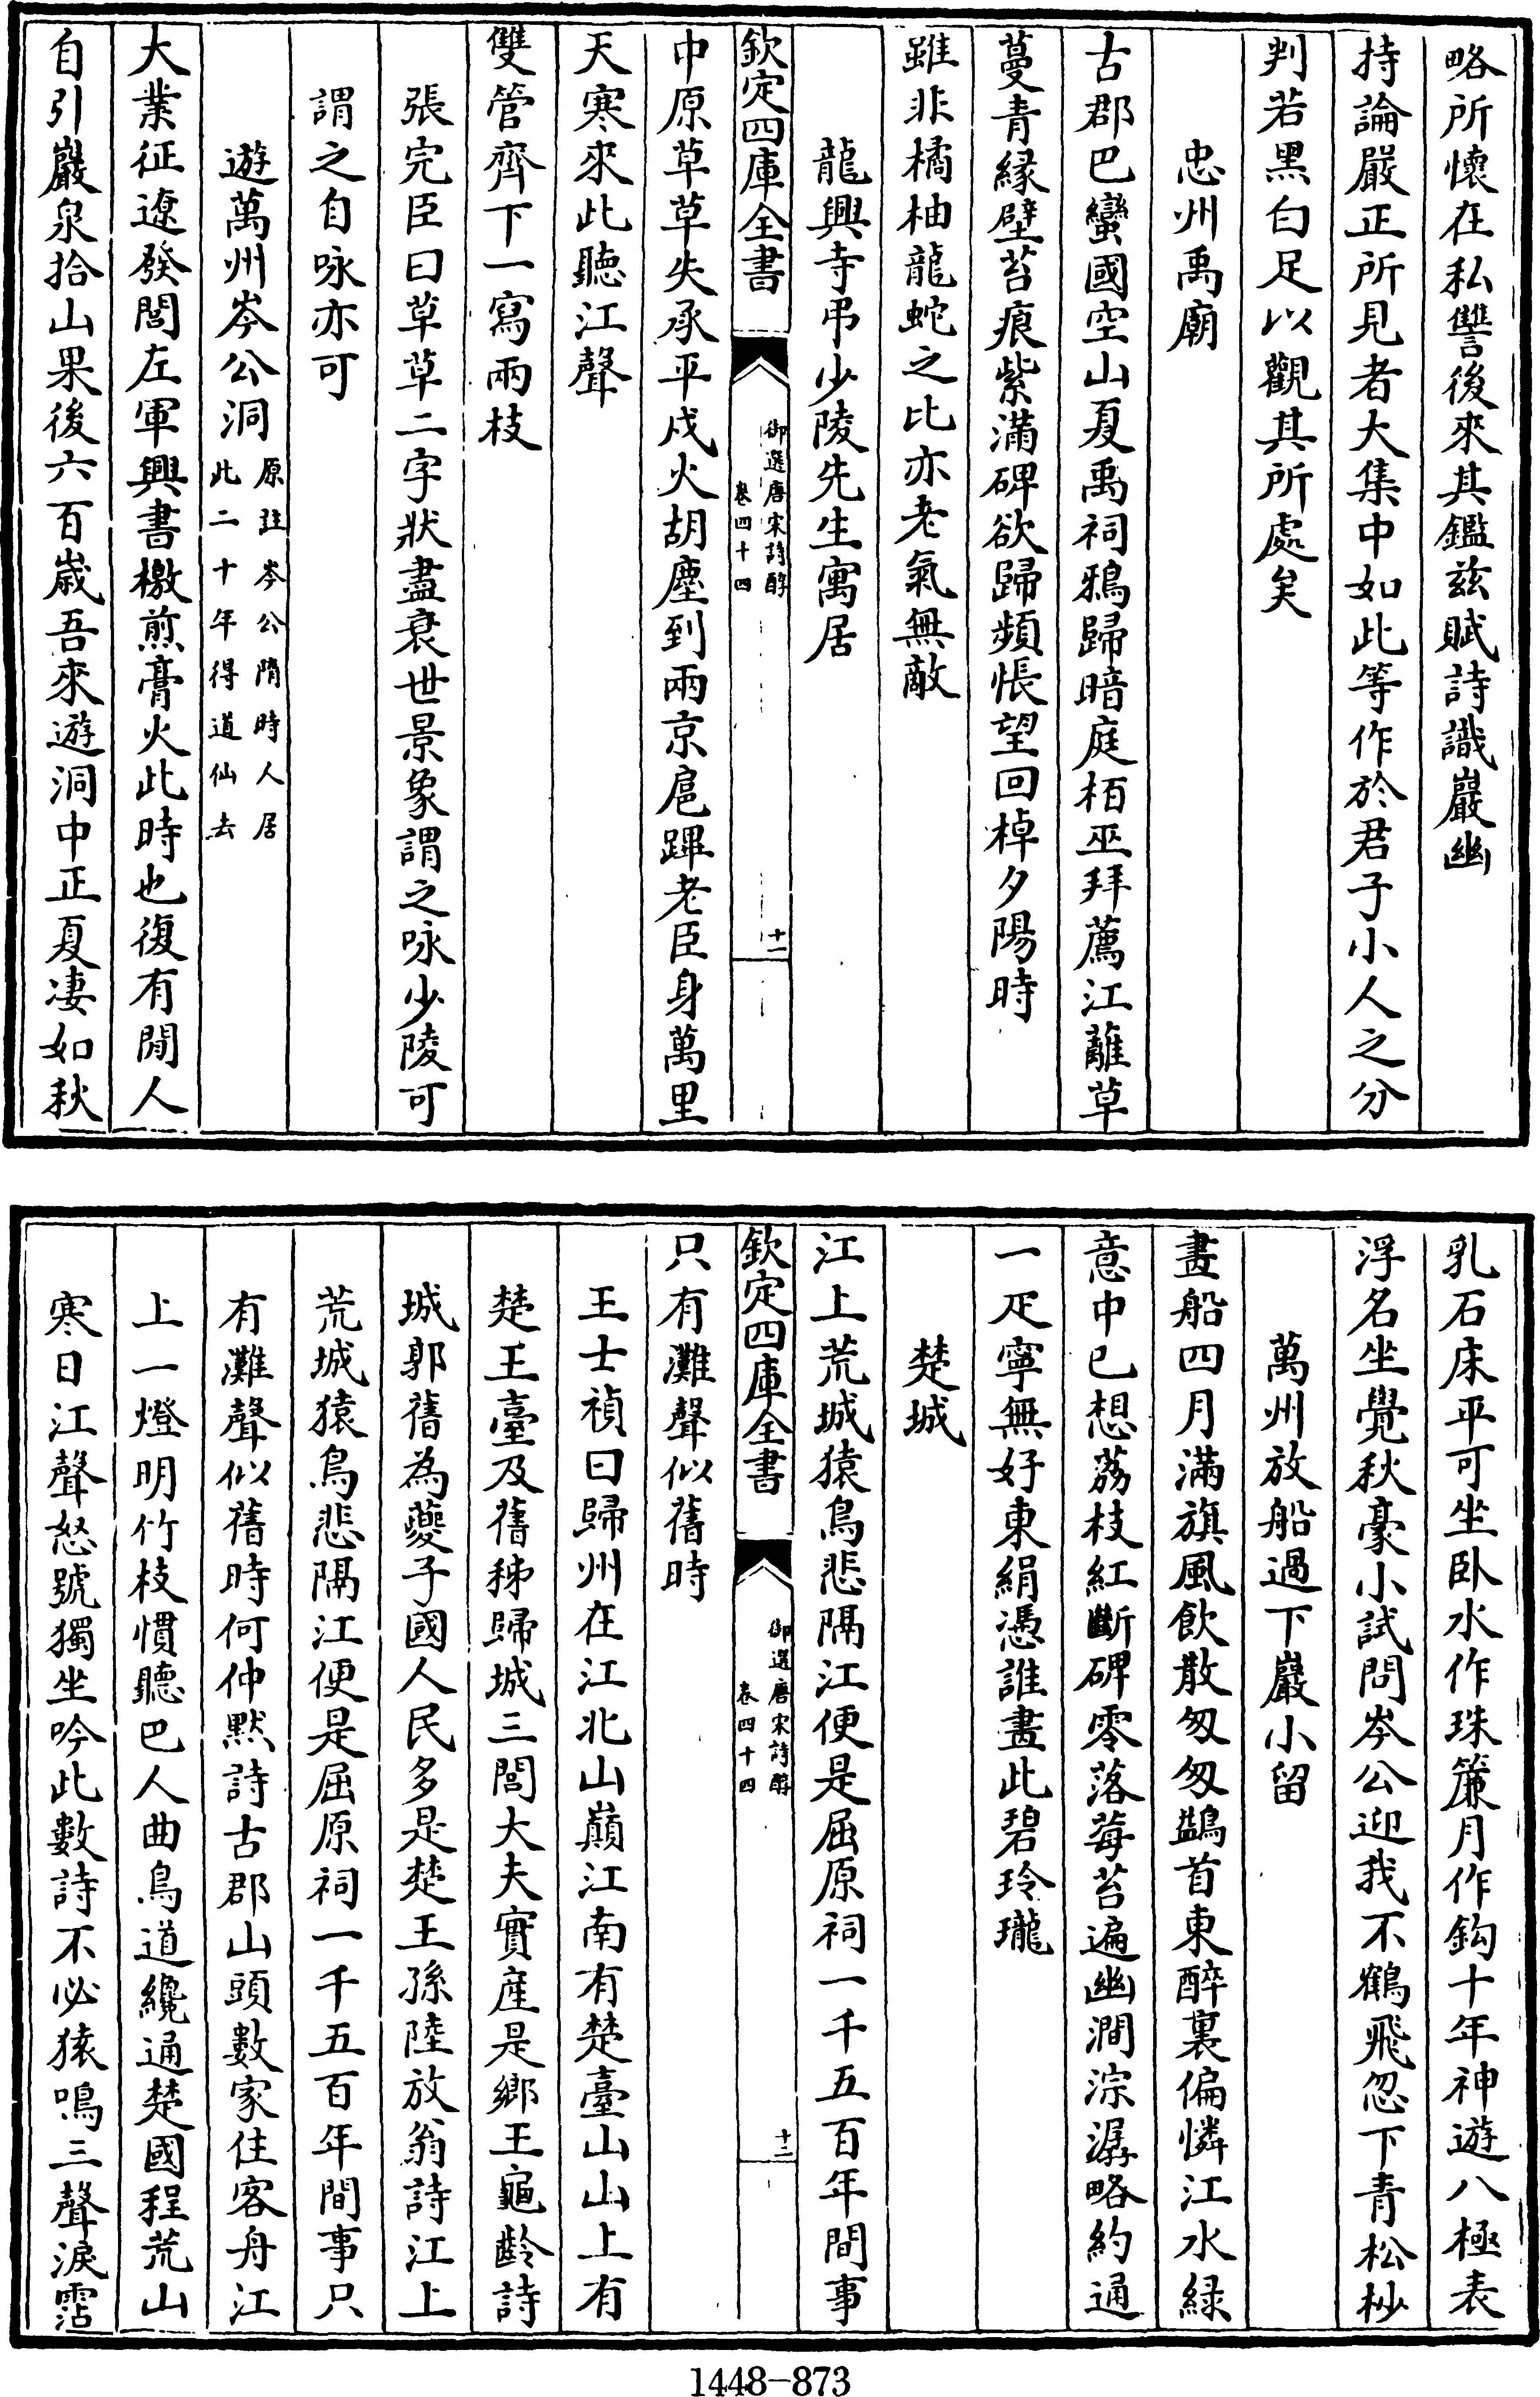 略所懷在私讐後來其鑑兹賦詩識巖幽
持論嚴正所見者大集中如此等作於君子小人之分
判若黑白足以觀其所處矣
忠州禹廟
古郡巴蠻國空山夏禹祠鴉歸暗庭栢巫拜薦江蘺草
蔓青緣壁苔痕紫滿碑欲歸頻悵望回棹夕陽時
雖非橘柚龍蛇之比亦老氣無敵
龍興寺弔少陵先生寓居
欽定四庫全書
御選唐宋詩醇
卷四十四
十一
中原草草失承平戍火胡塵到兩京扈蹕老臣身萬里
天寒來此聽江聲
雙管齊下一寫兩枝
張完臣曰草草二字狀盡衰世景象謂之咏少陵可
謂之自咏亦可
遊萬州岑公洞
原註岑公隋時人居
此二十年得道仙去
大業征遼發閭左軍興書檄煎膏火此時也復有閒人
自引巖泉拾山果後六百歲吾來遊洞中正夏凄如秋
乳石床平可坐卧水作珠簾月作鈎十年神遊八極表
浮名坐覺秋豪小試問岑公迎我不鶴飛忽下青松杪
萬州放船過下巖小留
畫船四月滿旗風飲散匆匆鷁首東醉裏偏憐江水緑
意中已想荔枝紅斷碑零落莓苔遍幽澗淙潺略約通
一疋寧無好東絹憑誰畫此碧玲瓏
楚城
江上荒城猿鳥悲隔江便是屈原祠一千五百年間事
欽定四庫全書
御選唐宋詩醇
卷四十四
十二
只有灘聲似舊時
王士禎曰歸州在江北山巔江南有楚臺山山上有
楚王臺及舊秭歸城三閭大夫實産是鄉王龜齡詩
城郭舊為夔子國人民多是楚王孫陸放翁詩江上
荒城猿鳥悲隔江便是屈原祠一千五百年間事只
有灘聲似舊時何仲默詩古郡山頭數家住客舟江
上一燈明竹枝慣聽巴人曲鳥道纔通楚國程荒山
寒日江聲怒號獨坐吟此數詩不必猿鳴三聲淚霑
1448-873